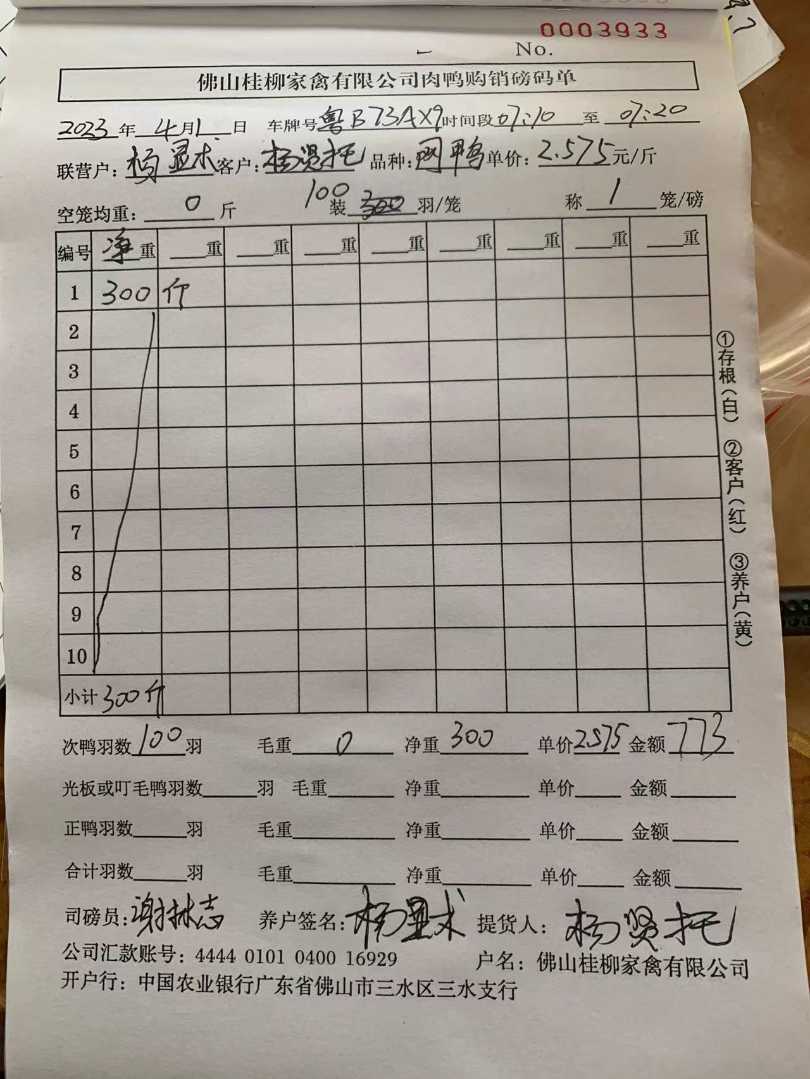 0003933
No.
佛山桂柳家禽有限公司肉鸭购销磅码单
2023年4月1日 车牌号粤B73AX9时间段07:10至07:20
联营户:杨显术客户:杨贤托品种:网鸭单价:2.575元/斤
空笼均重:0斤 100装300羽/笼 称1笼/磅
编号 净重 重 重 重 重 重 重 重 重
1 300斤
2
3
4
5
6
7
8
9
10
小计 300斤
①存根(白) ②客户(红) ③养户(黄)
次鸭羽数100羽 毛重0 净重300 单价2.575 金额773
光板或叮毛鸭羽数 羽 毛重 净重 单价 金额
正鸭羽数 羽 毛重 净重 单价 金额
合计羽数 羽 毛重 净重 单价 金额
司磅员:谢林志 养户签名:杨显术 提货人:杨贤托
公司汇款账号:4444 0101 0400 16929 户名:佛山桂柳家禽有限公司
开户行:中国农业银行广东省佛山市三水区三水支行